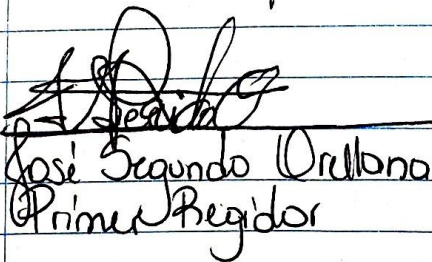 José Segundo Orellana
Primer Regidor